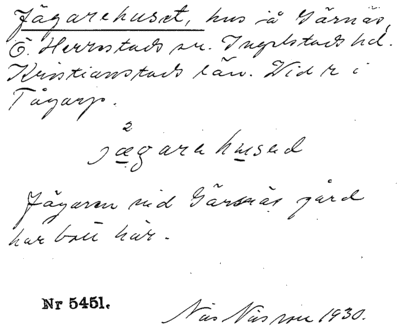 Jägarehuset, hus i å Gärsnäs,
Ö. Herrestads sn. Ingelstads hd.
Kristianstads län. Vid r i
Tågarp.
2
jægarehused
Jägaren vid Gärsnäs gård
har bott här.
Nr 5451.
1930.